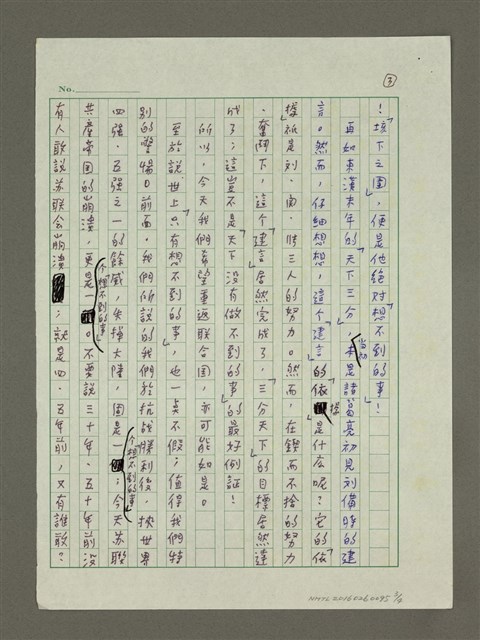 No.
③
！垓下之圍，便是他絕對「想不到的事」！
再如東漢末年的「天下三分」，當初本是諸葛亮初見劉備時的建
言。然而，仔細想想，這個「建言」的依據是什么呢？它的「依
據」祇是刘、関、張三人的努力。然而，在鍥而不捨的努力
、奮鬥下，這个「建言」居然完成了，「三分天下」的目標居然達
成了；這豈不是「天下沒有做不到的事」的最好例証！
所以，今天我們希望重返联合国，亦可能如是。
至於說「世上只有想不到的事」，也一点不假；值得我們特
別的警惕。前面，我們所說的我們於抗战勝利後，挾世界
四强、五强之一的餘威，失掉大陸，固是一个「想不到的事」；今天苏联
共產帝国的崩溃，更是个「想不到的事」。不要說三十年、五十年前沒
有人敢說苏联会崩溃；就是四、五年前，又有誰敢？
NMTL20160260095 3/9